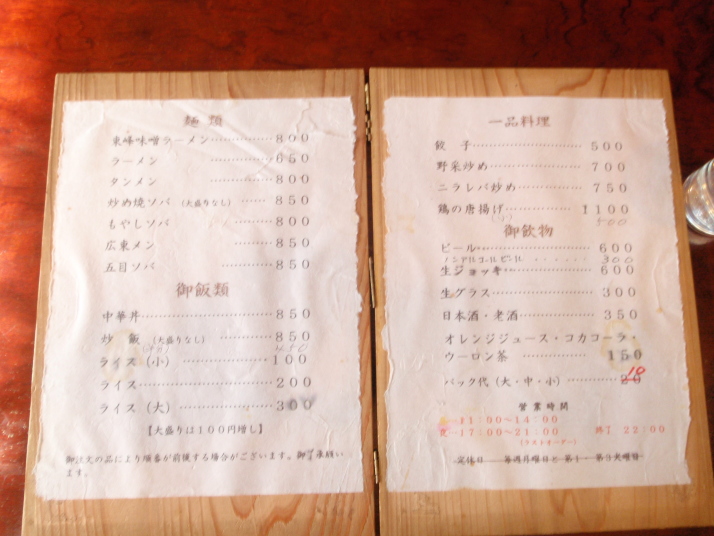 麺類
東峰味噌ラーメン……………８００
ラーメン …………６５０
タンメン …………８００
炒め焼ソバ （大盛りなし） ……８５０
もやしソバ …………８００
広東メン …………８５０
五目ソバ …………８５０
御飯類
中華丼………………………８５０
炒 飯 （大盛りなし） …………８５０
450
ライス（小）………………１００
ライス………………………２００
ライス（大）………………３００
【大盛りは１００円増し】
御注文の品により順番が前後する場合がございます。御了承願い
ます。
一品料理
餃 子 ………………………５００
野菜炒め ……………………７００
ニラレバ炒め ………………７５０
鶏の唐揚げ………………１１００
御飲物
ビール………………………６００
ノンアルコールビール ‥‥‥‥ 300
生ジョッキ…………………６００
生グラス ……………………３００
日本酒・老酒 ………………３５０
オレンジジュース・コカコーラ・
ウーロン茶 ……………… １５０
パック代（大・中・小） …………２０
10
営業時間
１１：００～１４：００
１７：００～２１：００ 終了 ２２：００
（ラストオーダー）
定休日 毎週月曜日と第１・第３火曜日